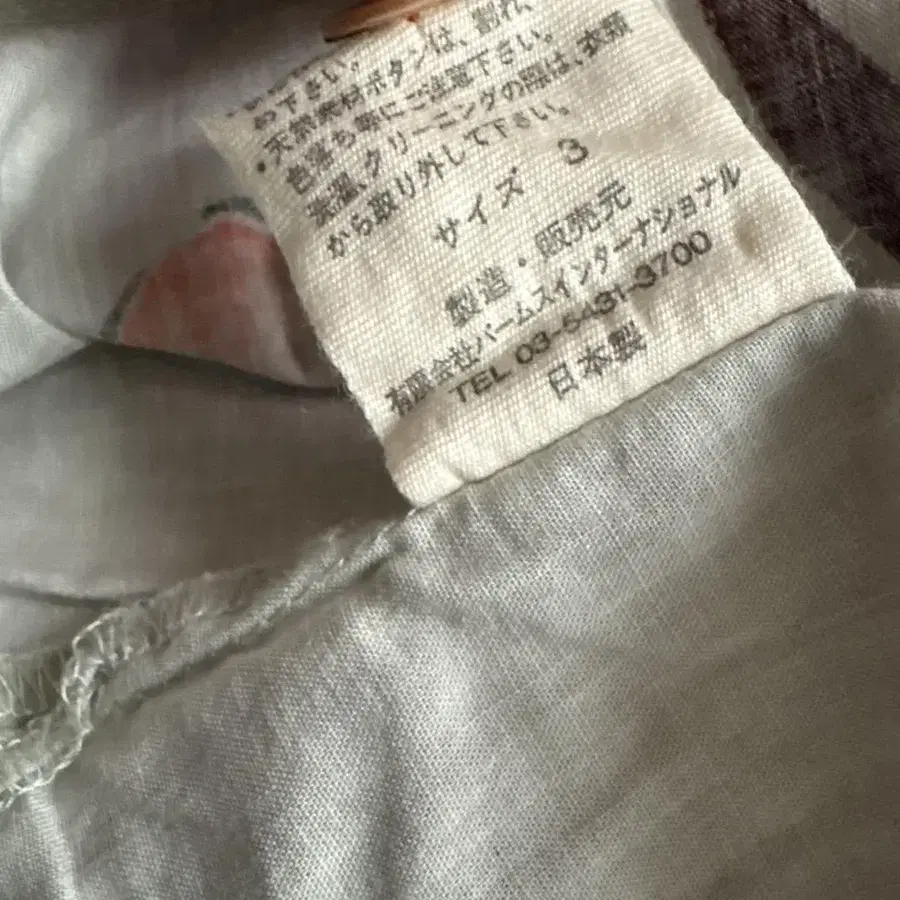 め下さい。
・天然素材ボタンは、割れ、
色落ち等にご注意下さい。
高温クリーニングの際は、衣類
から取り外して下さい。
サイズ 3
製造・販売元
有限会社パームスインターナショナル
TEL 03-5431-3700
日本製